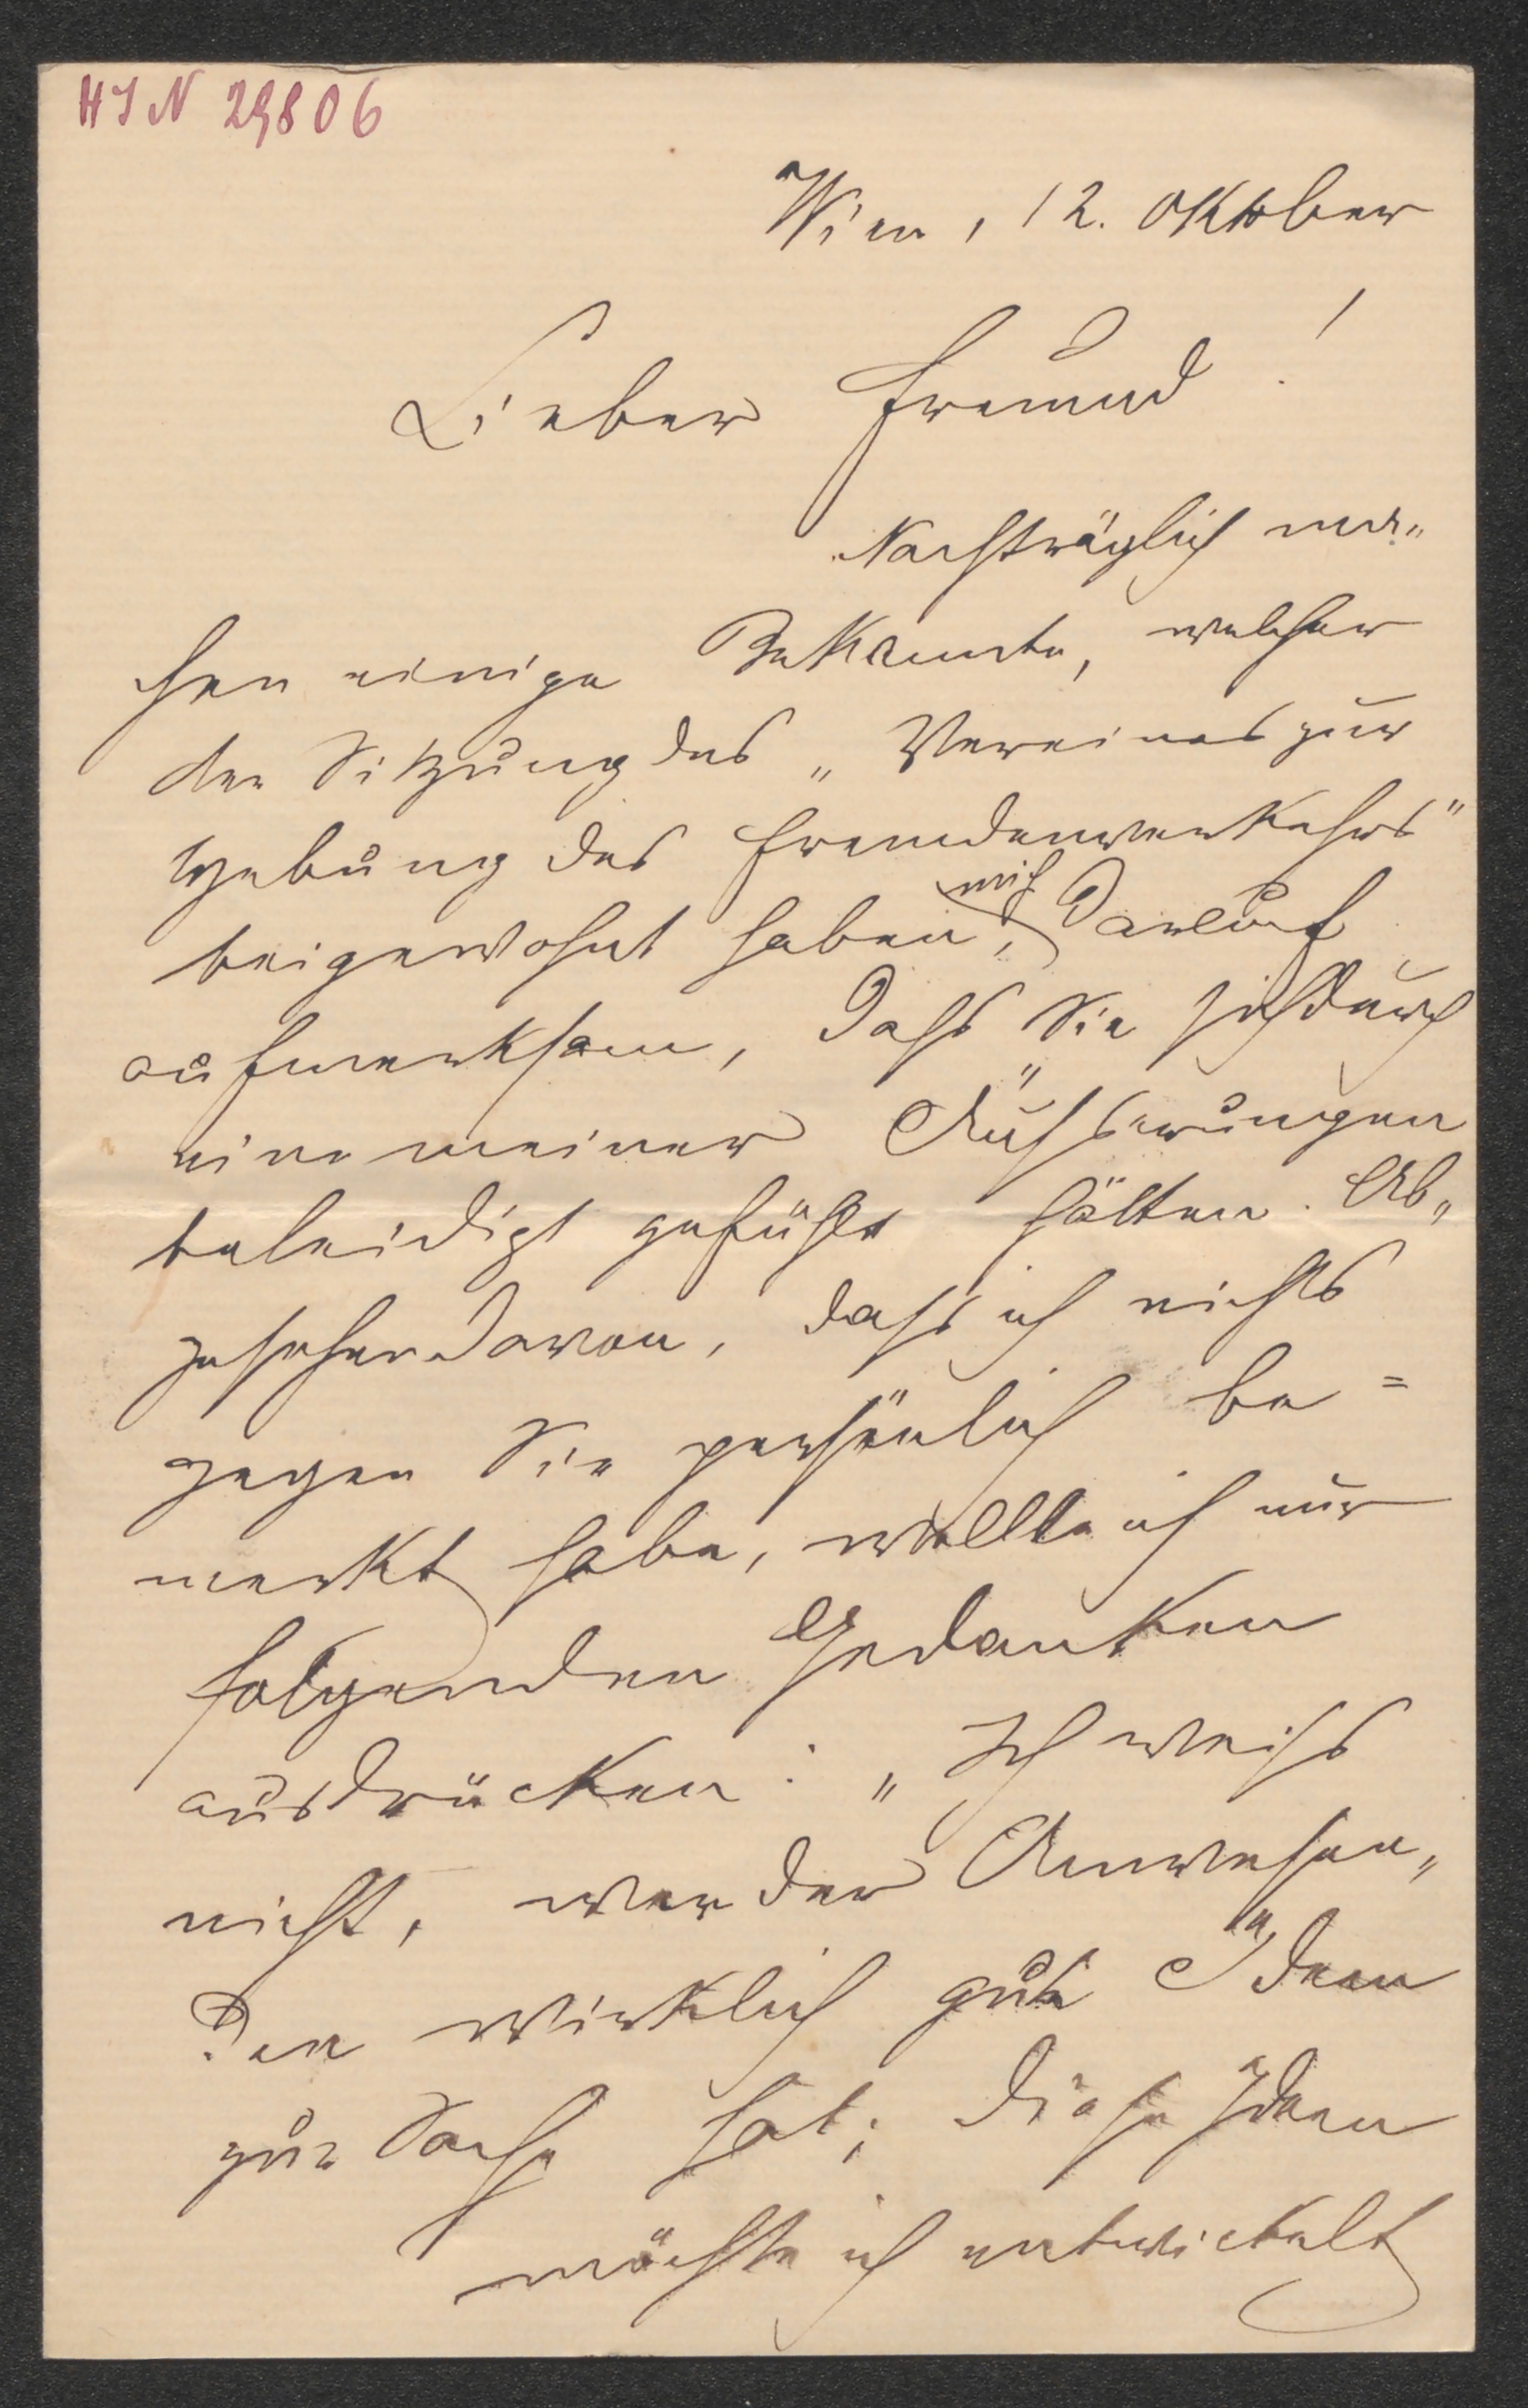 HIN 29806
Wien, 12. Oktober
Lieber Freund!
Nachträglich ma„
chen einige Bekannte, welcher
der Sitzung des „Vereines zur
Hebung des Fremdenverkehrs"
beigewohnt haben, mich darauf
aufmerksam, dass Sie sich durch
eine meiner Äusserungen
beleidigt gefühlt hätten. Ab„
gesehen davon, dass ich nichts
gegen Sie persönlich be=
merkt habe, wollte ich nur
folgenden Gedanken
ausdrücken: „Ich weiss
nicht, wer der Anwesen„
den wirklich gute Ideen
zur Sache hat; diese Ideen
möchte ich entwickelt